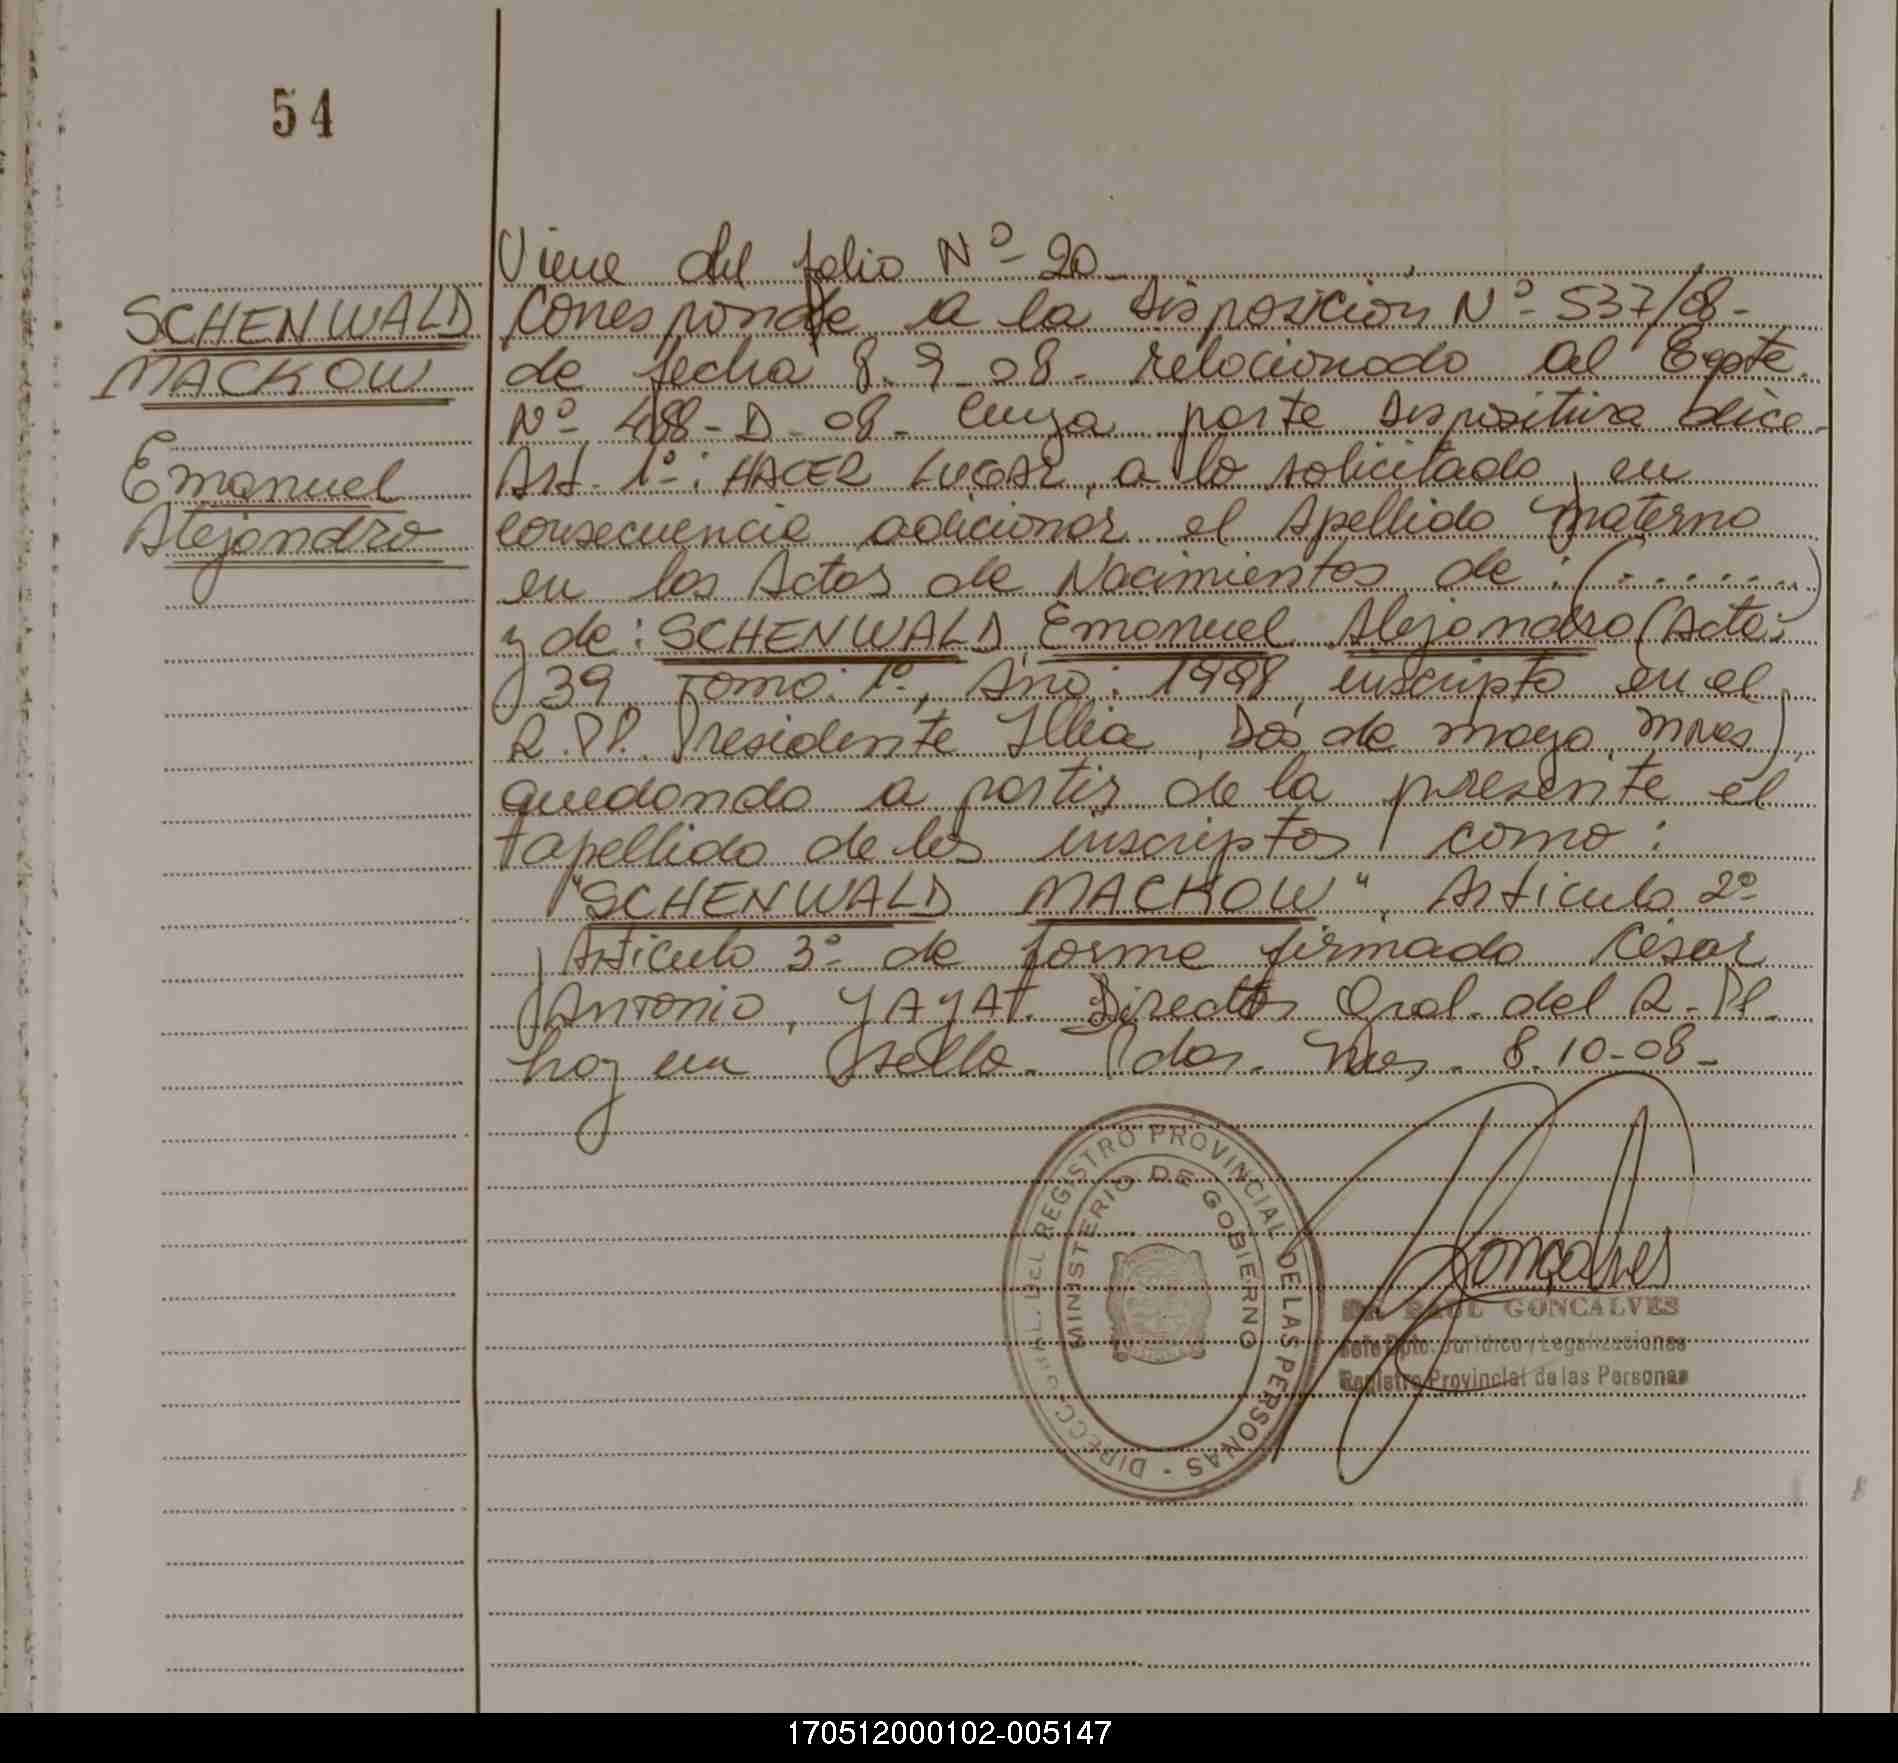 54
Viene del folio Nº 20
SCHENWALD
MACKOW
Emanuel
Alejandro
Corresponde a la Disposicion Nº 537/08-
de fecha 8-9-08- relacionado al Expte.
Nº 488-D-08- Cuya parte Dispositiva dice-
Art. 1º: HACER LUGAR, a lo solicitado, en
consecuencia adicionar el Apellido materno
en los Actas de Nacimientos de: (.......)
y de: SCHENWALD, Emanuel Alejandro (Acta:
39, Tomo: 1º, Año: 1998, inscripto en el
R.P.P. Presidente Illia, Dos de mayo, Mnes),
quedando a partir de la presente el
apellido de los inscriptos como:
"SCHENWALD MACKOW", Articulo 2º
Articulo 3º de forma firmado Cesar
Antonio, YAYAT. Director Gral. del R.P.P.
hay un sello. Pdas. Mnes. 8-10-08-
DIRECC. GRAL. DEL REGISTRO PROVINCIAL DE LAS PERSONAS -
MINISTERIO DE GOBIERNO
Goncalves
Dr. RAUL GONCALVES
Jefe Dpto. Jurídico y Legalizaciones
Registro Provincial de las Personas
170512000102-005147